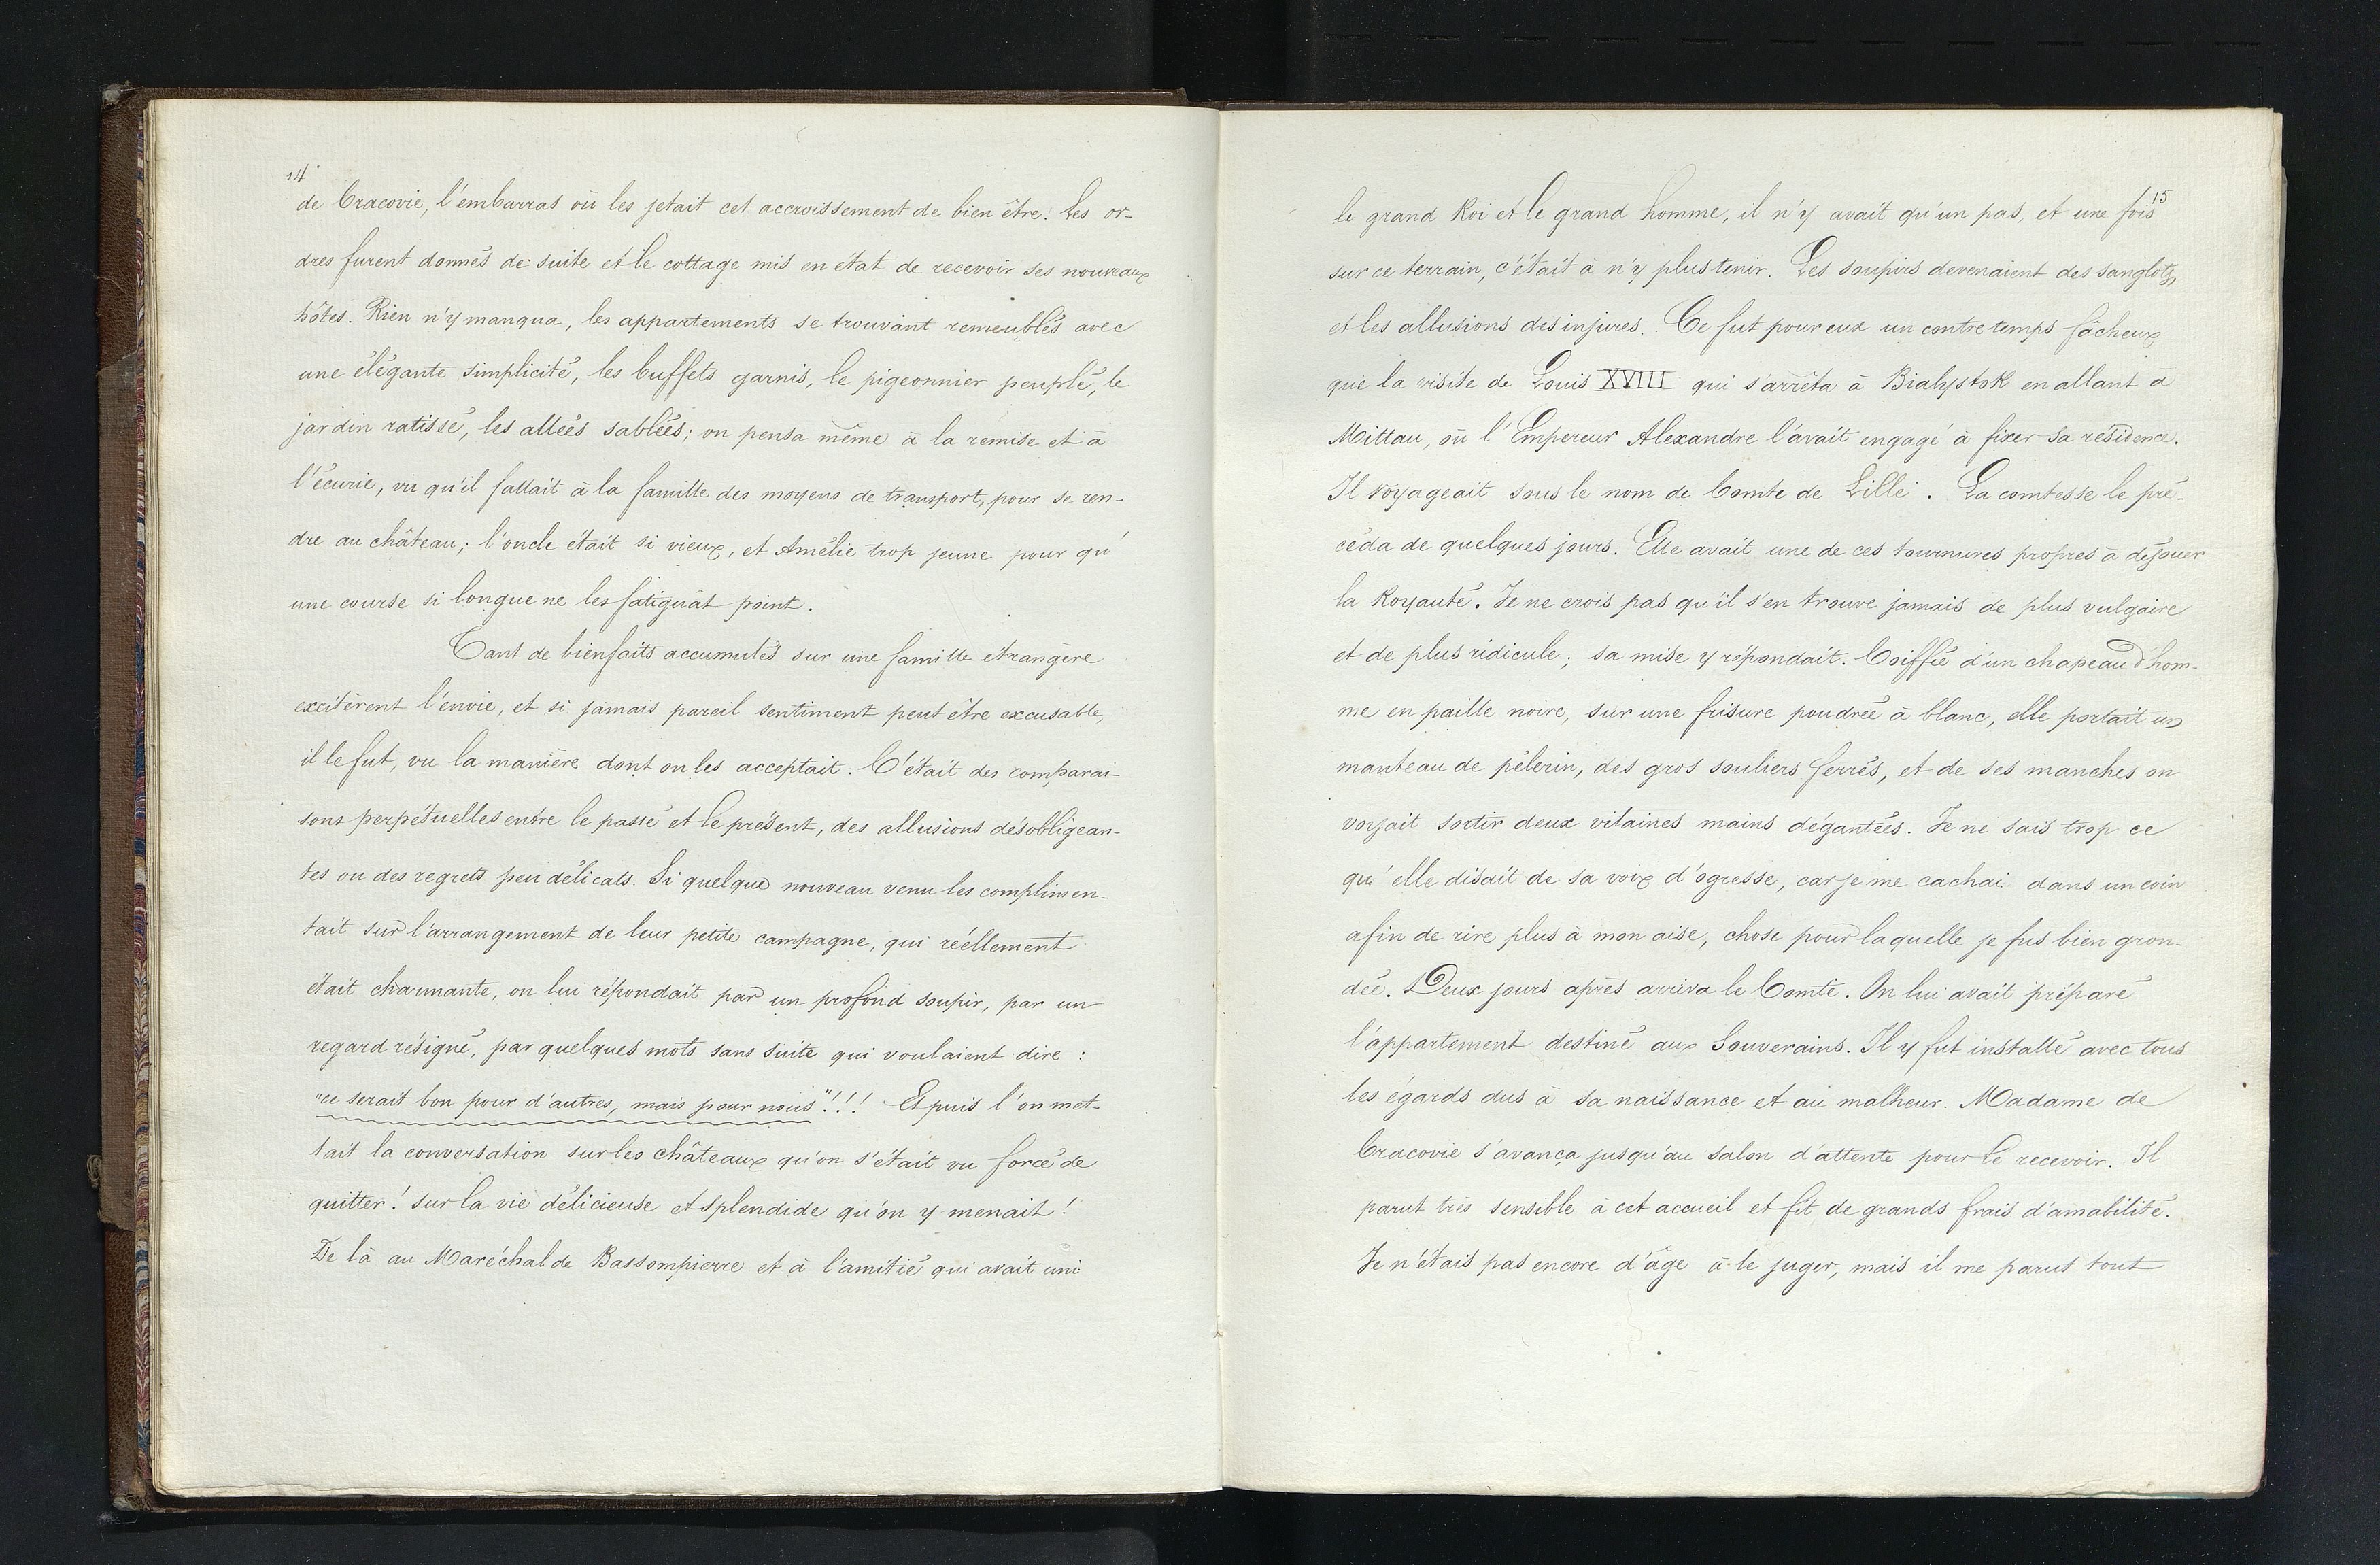 14
de Cracovie, l'embarras où les jetait cet accroissement de bien être. Les or-
dres furent donnés de suite et le cottage mis en état de recevoir ses nouveaux
hôtes. Rien n'y manqua, les appartements se trouvant remeublés avec
une élégante simplicité, les buffets garnis, le pigeonnier peuplé, le
jardin ratissé, les allées sablées; on pensa même à la remise et à
l'écurie, vu qu'il fallait à la famille des moyens de transport, pour se ren-
dre au château; l'oncle était si vieux, et Amélie trop jeune pour qu'
une course si longue ne les fatiguât point.
Tant de bienfaits accumulés sur une famille étrangère
excitèrent l'envie, et si jamais pareil sentiment peut être excusable,
il le fut, vu la manière dont on les acceptait. C'était des comparai-
sons perpétuelles entre le passé et le présent, des allusions désobligean-
tes ou des regrets peu délicats. Si quelque nouveau venu les complimen-
tait sur l'arrangement de leur petite campagne, qui réellement
était charmante, on lui répondait par un profond soupir, par un
regard résigné, par quelques mots sans suite qui voulaient dire :
"ce serait bon pour d'autres, mais pour nous"!!! Et puis l'on met-
tait la conversation sur les châteaux qu'on s'était vu forcé de
quitter! sur la vie délicieuse et splendide qu'on y menait!
De là au Maréchal de Bassompierre et à l'amitié qui avait uni
15
le grand Roi et le grand homme, il n'y avait qu'un pas, et une fois
sur ce terrain, c'était à n'y plus tenir. Les soupirs devenaient des sanglots,
et les allusions des injures. Ce fut pour eux un contretemps fâcheux
que la visite de Louis XVIII qui s'arrêta à Bialystok en allant à
Mittau, où l'Empereur Alexandre l'avait engagé à fixer sa résidence.
Il voyageait sous le nom de Comte de Lille. La comtesse le pré-
céda de quelques jours. Elle avait une de ces tournures propres à déjouer
la Royauté. Je ne crois pas qu'il s'en trouve jamais de plus vulgaire
et de plus ridicule; sa mise y répondait. Coiffée d'un chapeau d'hom-
me en paille noire, sur une frisure poudrée à blanc, elle portait un
manteau de pélerin, des gros souliers ferrés, et de ses manches on
voyait sortir deux vilaines mains dégantées. Je ne sais trop ce
qu'elle disait de sa voix d'ogresse, car je me cachai dans un coin
afin de rire plus à mon aise, chose pour laquelle je fus bien gron-
dée. Deux jours après arriva le Comte. On lui avait préparé
l'appartement destiné aux Souverains. Il y fut installé avec tous
les égards dus à sa naissance et au malheur. Madame de
Cracovie s'avança jusqu'au salon d'attente pour le recevoir. Il
parut très sensible à cet accueil et fit de grands frais d'amabilité.
Je n'étais pas encore d'âge à le juger, mais il me parut tout